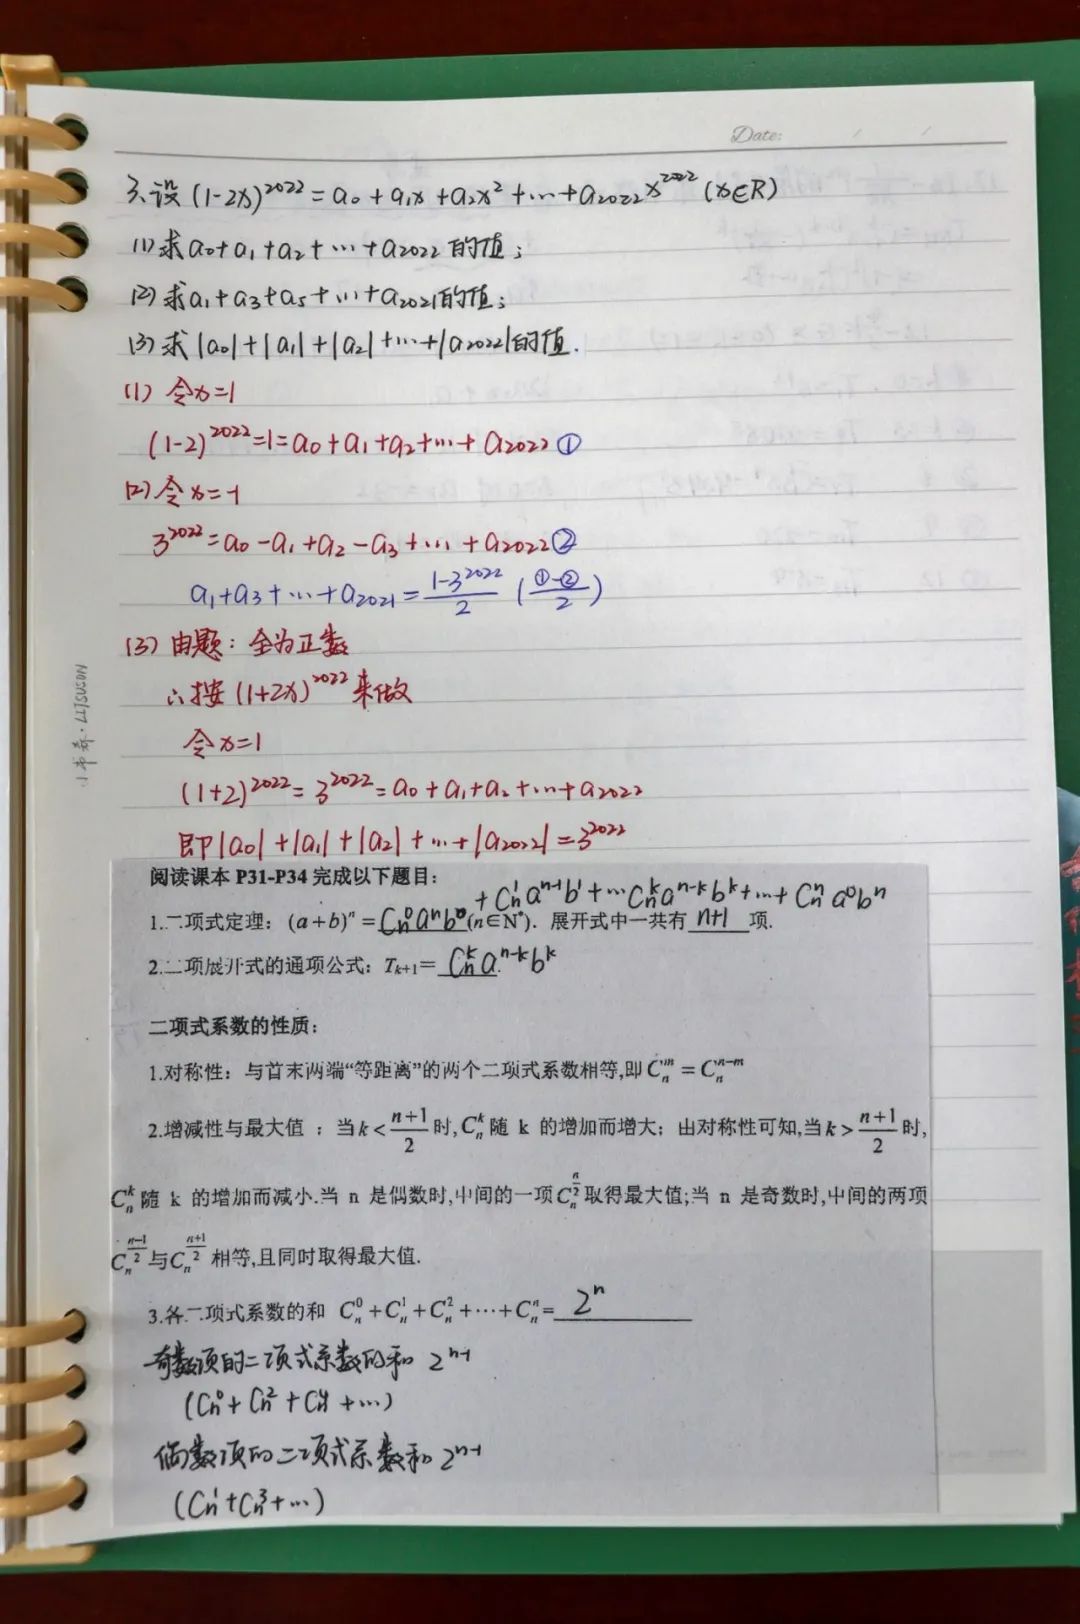 Date: / /
3.设 (1-2x)²⁰²² = a₀ + a₁x + a₂x² + … + a₂₀₂₂x²⁰²² (x∈R)
(1) 求a₀+a₁+a₂+…+a₂₀₂₂的值;
(2) 求a₁+a₃+a₅+…+a₂₀₂₁的值;
(3) 求|a₀|+|a₁|+|a₂|+…+|a₂₀₂₂|的值.
(1) 令x=1
(1-2)²⁰²²=1=a₀+a₁+a₂+…+a₂₀₂₂①
(2) 令x=-1
3²⁰²²=a₀-a₁+a₂-a₃+…+a₂₀₂₂②
a₁+a₃+…+a₂₀₂₁=\frac{1-3²⁰²²}{2} (\frac{①-②}{2})
(3) 由题: 全为正数
∴按(1+2x)²⁰²²来做
令x=1
(1+2)²⁰²²=3²⁰²²=a₀+a₁+a₂+…+a₂₀₂₂
即|a₀|+|a₁|+|a₂|+…+|a₂₀₂₂|=3²⁰²²
小书希·LIJSUSDN
阅读课本 P31-P34 完成以下题目:
+C_n^1 a^{n-1}b^1+…C_n^k a^{n-k}b^k+…+C_n^n a^0b^n
1.二项式定理: (a+b)^n=C_n^0a^nb^0(n∈N*). 展开式中一共有 n+1 项.
2.二项展开式的通项公式: T_{k+1}= C_n^k a^{n-k}b^k
二项式系数的性质:
1.对称性: 与首末两端“等距离”的两个二项式系数相等,即 C_n^m = C_n^{n-m}
2.增减性与最大值 : 当k<\frac{n+1}{2}时,C_n^k 随 k 的增加而增大; 由对称性可知,当k>\frac{n+1}{2}时,
C_n^k 随 k 的增加而减小.当 n 是偶数时,中间的一项C_n^{\frac{n}{2}}取得最大值;当 n 是奇数时,中间的两项
C_n^{\frac{n-1}{2}}与C_n^{\frac{n+1}{2}}相等,且同时取得最大值.
3.各二项式系数的和 C_n^0+C_n^1+C_n^2+⋯+C_n^n= 2^n
奇数项的二项式系数的和 2^{n-1}
(C_n^0+C_n^2+C_n^4+…)
偶数项的二项式系数和 2^{n-1}
(C_n^1+C_n^3+…)